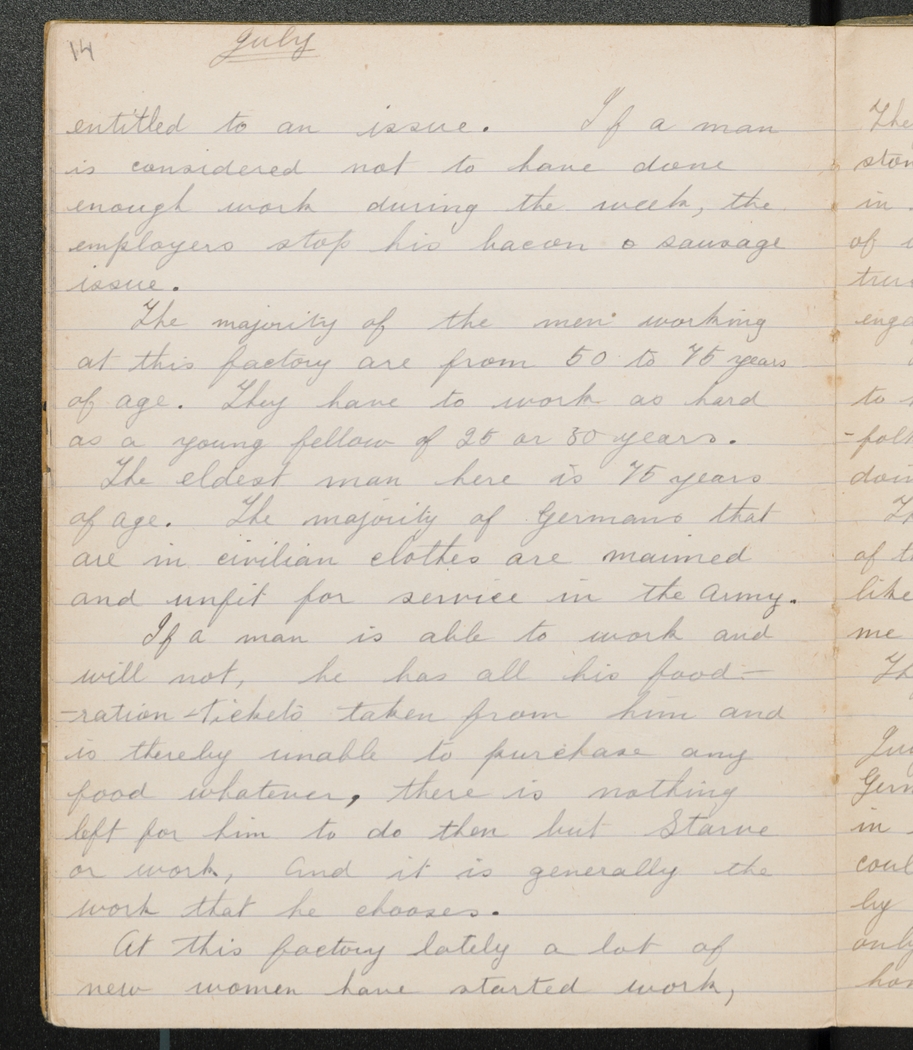 14 July
entitled to an issue. If a man
is considered not to have done
enough work during the week, the
employers stop his bacon o sausage
issue.
The majority of the men working
at this factory are from 50 to 75 years
of age. They have to work as hard
as a young fellow of 25 or 30 years.
The eldest man here is 75 years
of age. The majority of Germans that
are in civilian clothes are maimed
and unfit for service in the Army.
If a man is able to work and
will not, he has all his food-
-ration-tickets taken from him and
is thereby unable to purchase any
food whatever, there is nothing
left for him to do then but Starve
or work, And it is generally the
work that he chooses.
At this factory lately a lot of
new women have started work,
The
in
of
to
of t
like
me
in
by